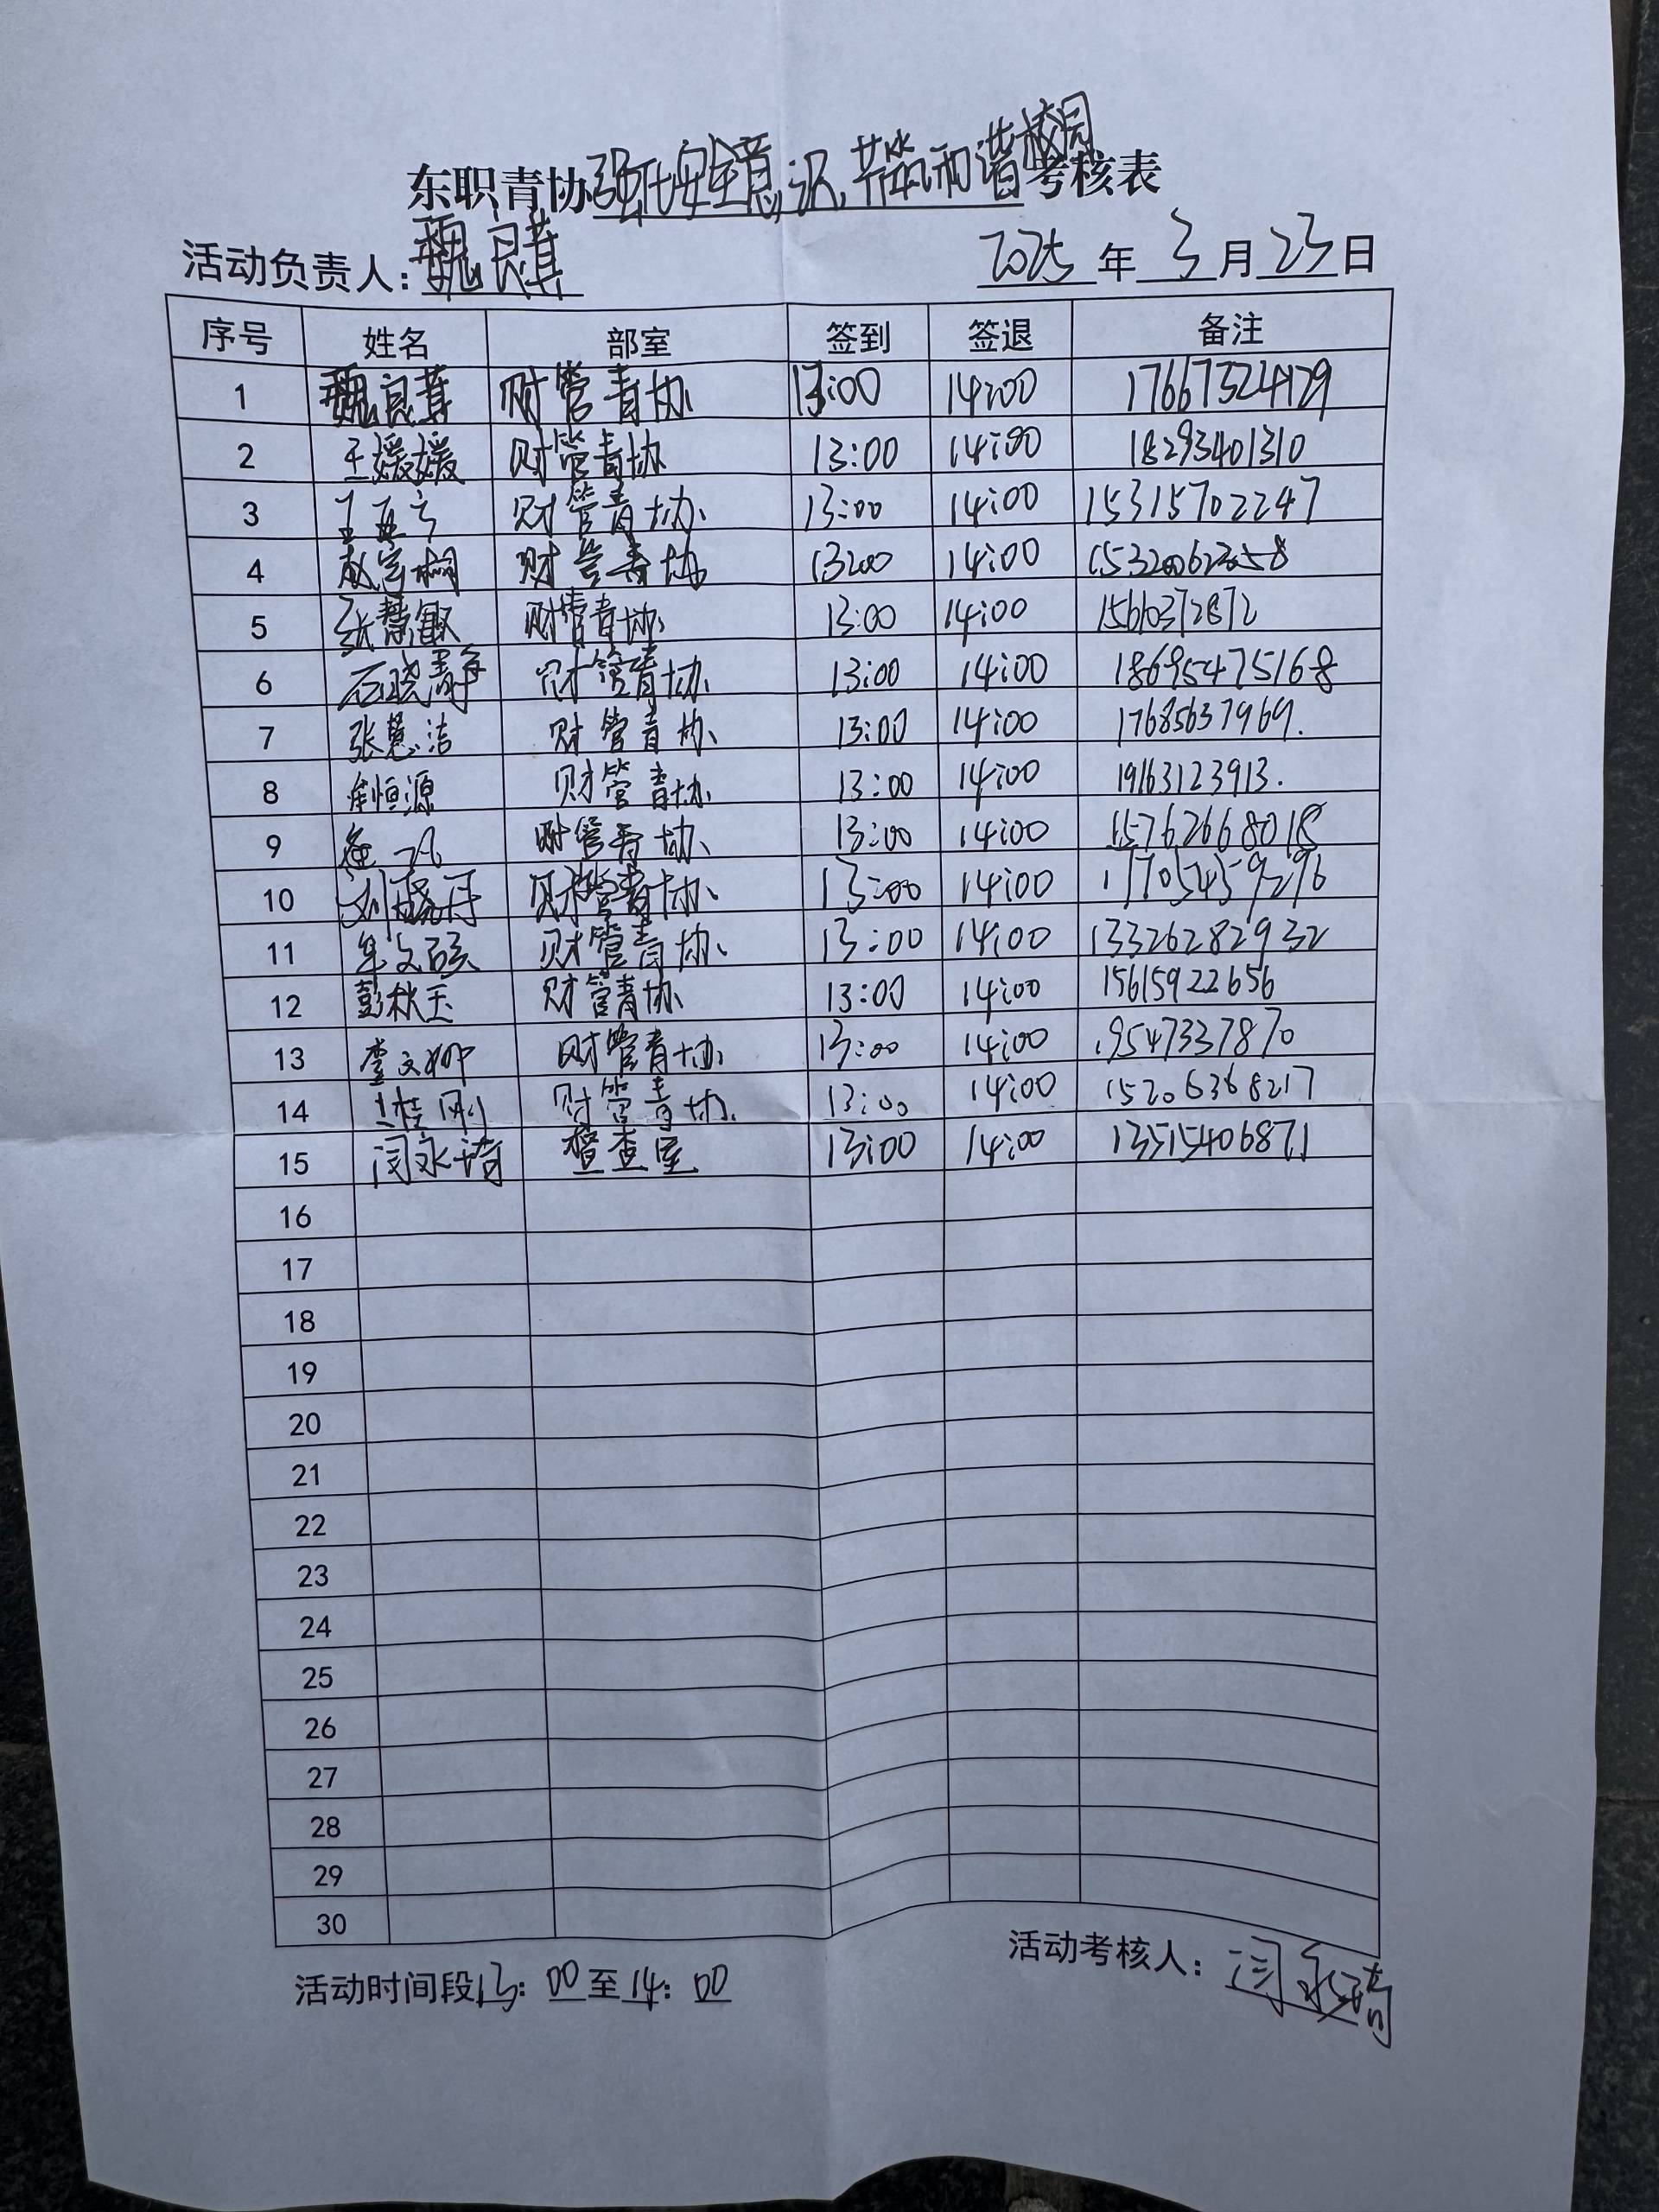 东职青协强化安全意识,共筑和谐校园考核表
活动负责人:魏良萁 2025年3月23日
序号 姓名 部室 签到 签退 备注
1 魏良萁 财管青协 13:00 14:00 17667524129
2 王媛媛 财管青协 13:00 14:00 18293401310
3 财管青协 13:00 14:00 15315702247
4 财管青协 13:00 14:00
5 张慧敏 财管青协 13:00 14:00
6 石晓静 财管青协 13:00 14:00 18695475168
7 张慧洁 财管青协 13:00 14:00 17685637969.
8 恒源 财管青协 13:00 14:00 19163123913.
9 财管青协 13:00 14:00 15762668018
10 刘晓丹 财管青协 13:00 14:00 17705459296
11 牟文硕 财管青协 13:00 14:00 13326282932
12 彭秋玉 财管青协 13:00 14:00 15615922656
13 李文柳 财管青协 13:00 14:00 19547337870
14 财管青协 13:00 14:00 15206368217
15 闫永琦 督查室 13:00 14:00 13515406871
16
17
18
19
20
21
22
23
24
25
26
27
28
29
30
活动时间段13:00至14:00 活动考核人:闫永琦